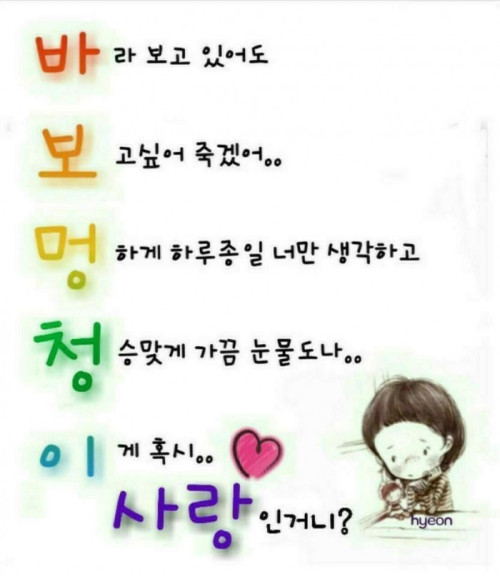 바라 보고 있어도
보고싶어 죽겠어..
멍하게 하루종일 너만 생각하고
청승맞게 가끔 눈물도나..
이게 혹시..
사랑인거니?
hyeon